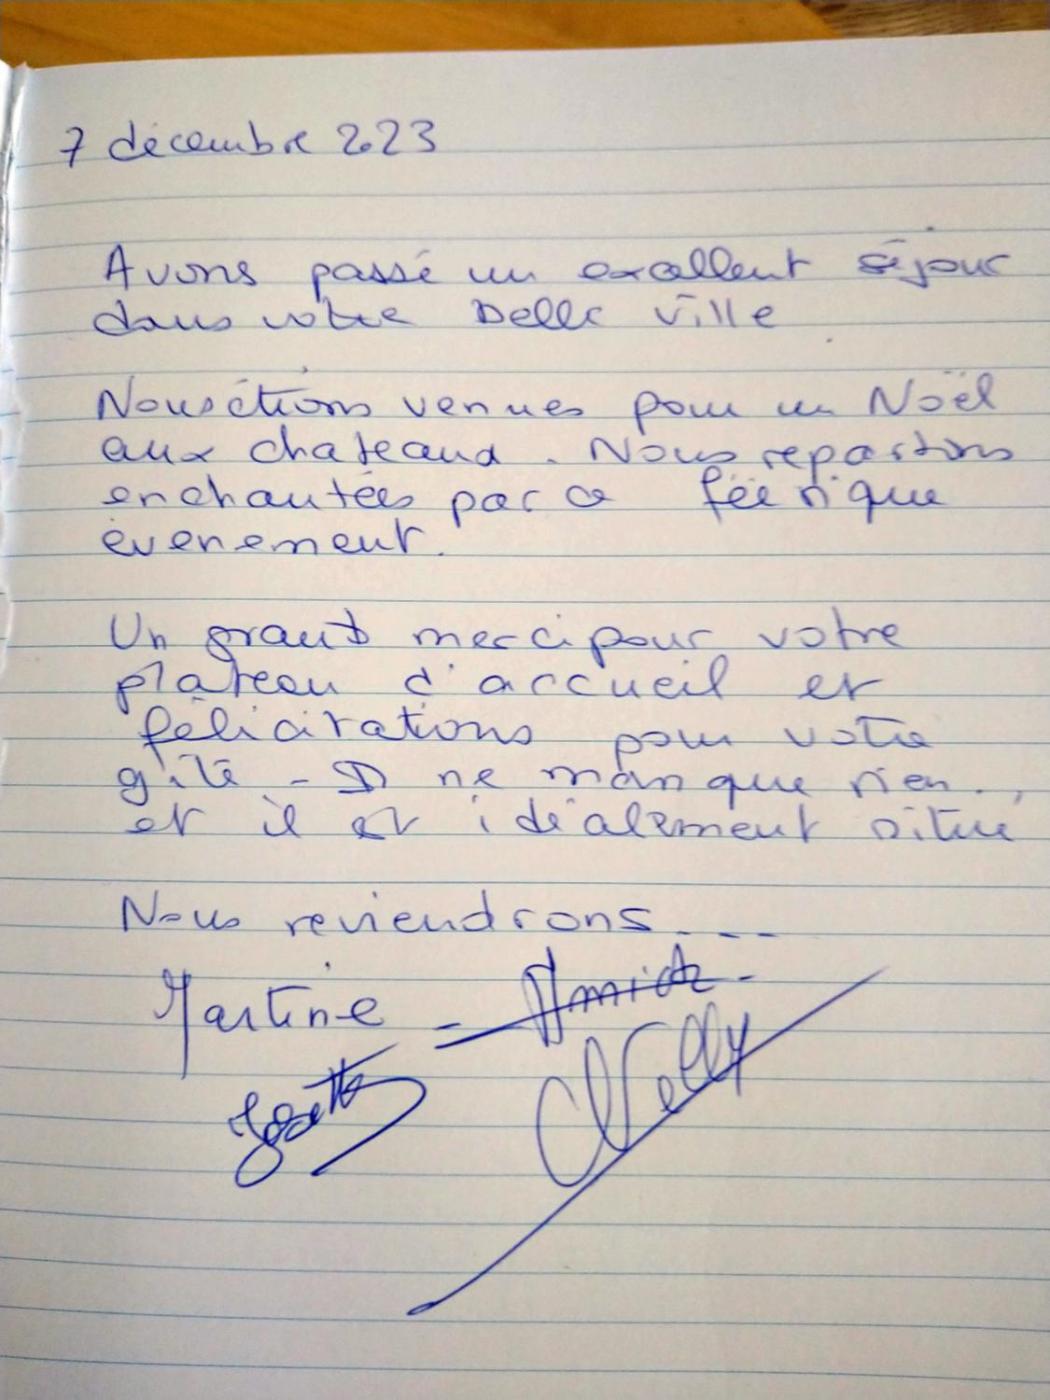 7 décembre 2023
Avons passé un excellent séjour
dans votre belle ville
Nous étions venues pour un Noël
aux chateaux. Nous repartons
enchantées par ce féérique
évenement.
Un grand merci pour votre
plateau d'accueil et
félicitations pour votre
gîte - Il ne manque rien.,
et il est idéalement situé
Nous reviendrons ----
Martine -
Nelly